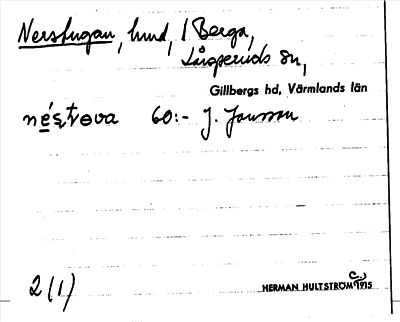 Nerstugan, hmd, / Berga,
Långseruds sn,
Gillbergs hd, Värmlands län
néstova 60:- J. Jonsson
2(1)
HERMAN HULTSTRÖM 1915